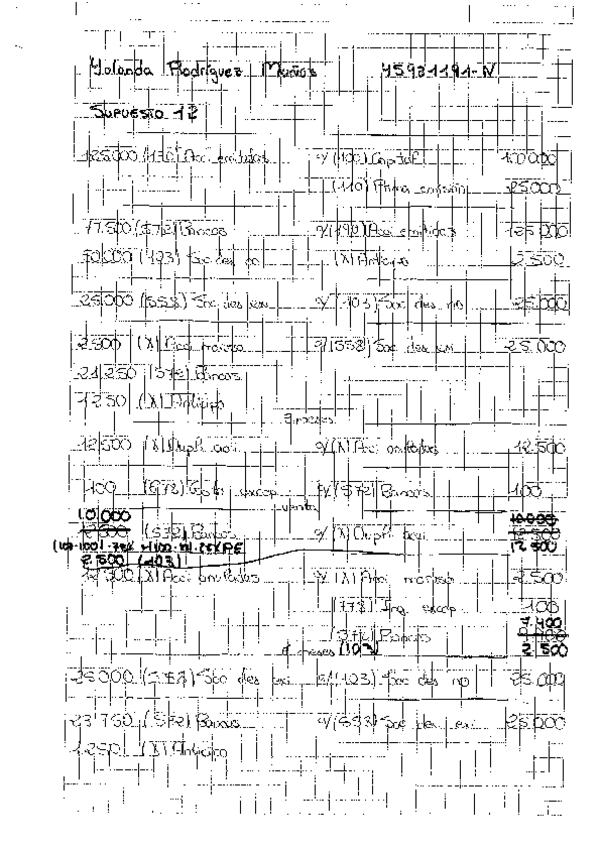 Yolanda Rodríguez Muñoz 45931191-N
SUPUESTO 12
125000 (190) Acci emitidas a/(100) Capital 100000
(110) Prima emisión 25000
77.500 (572) Bancos a/(190) Acci emitidas 125000
50000 (103) Soc des no (X) Anticipo 2500
25000 (558) Soc des exi a/(103) Soc des no 25000
2500 (X) Acci moroso a/(558) Soc des exi 25000
21250 (572) Bancos
1250 (X) Anticipo
12500 (X) Dupli acci a/(X) Acci emitidas 12.500
100 (678) Gasto excep a/(572) Bancos 100
venta
10000 10000
12500 (572) Bancos a/(X) Dupli acci 12500
2.500 (103) 12 500
12500 (X) Acci emitidas a/(X) Acci moroso 2500
(778) Ing. excep 100
7.400
(572) Bancos
meses (103) 2 500
25000 (558) Soc des exi a/(103) Soc des no 25000
23750 (572) Bancos a/(558) Soc des exi 25000
1250 (X) Anticipo